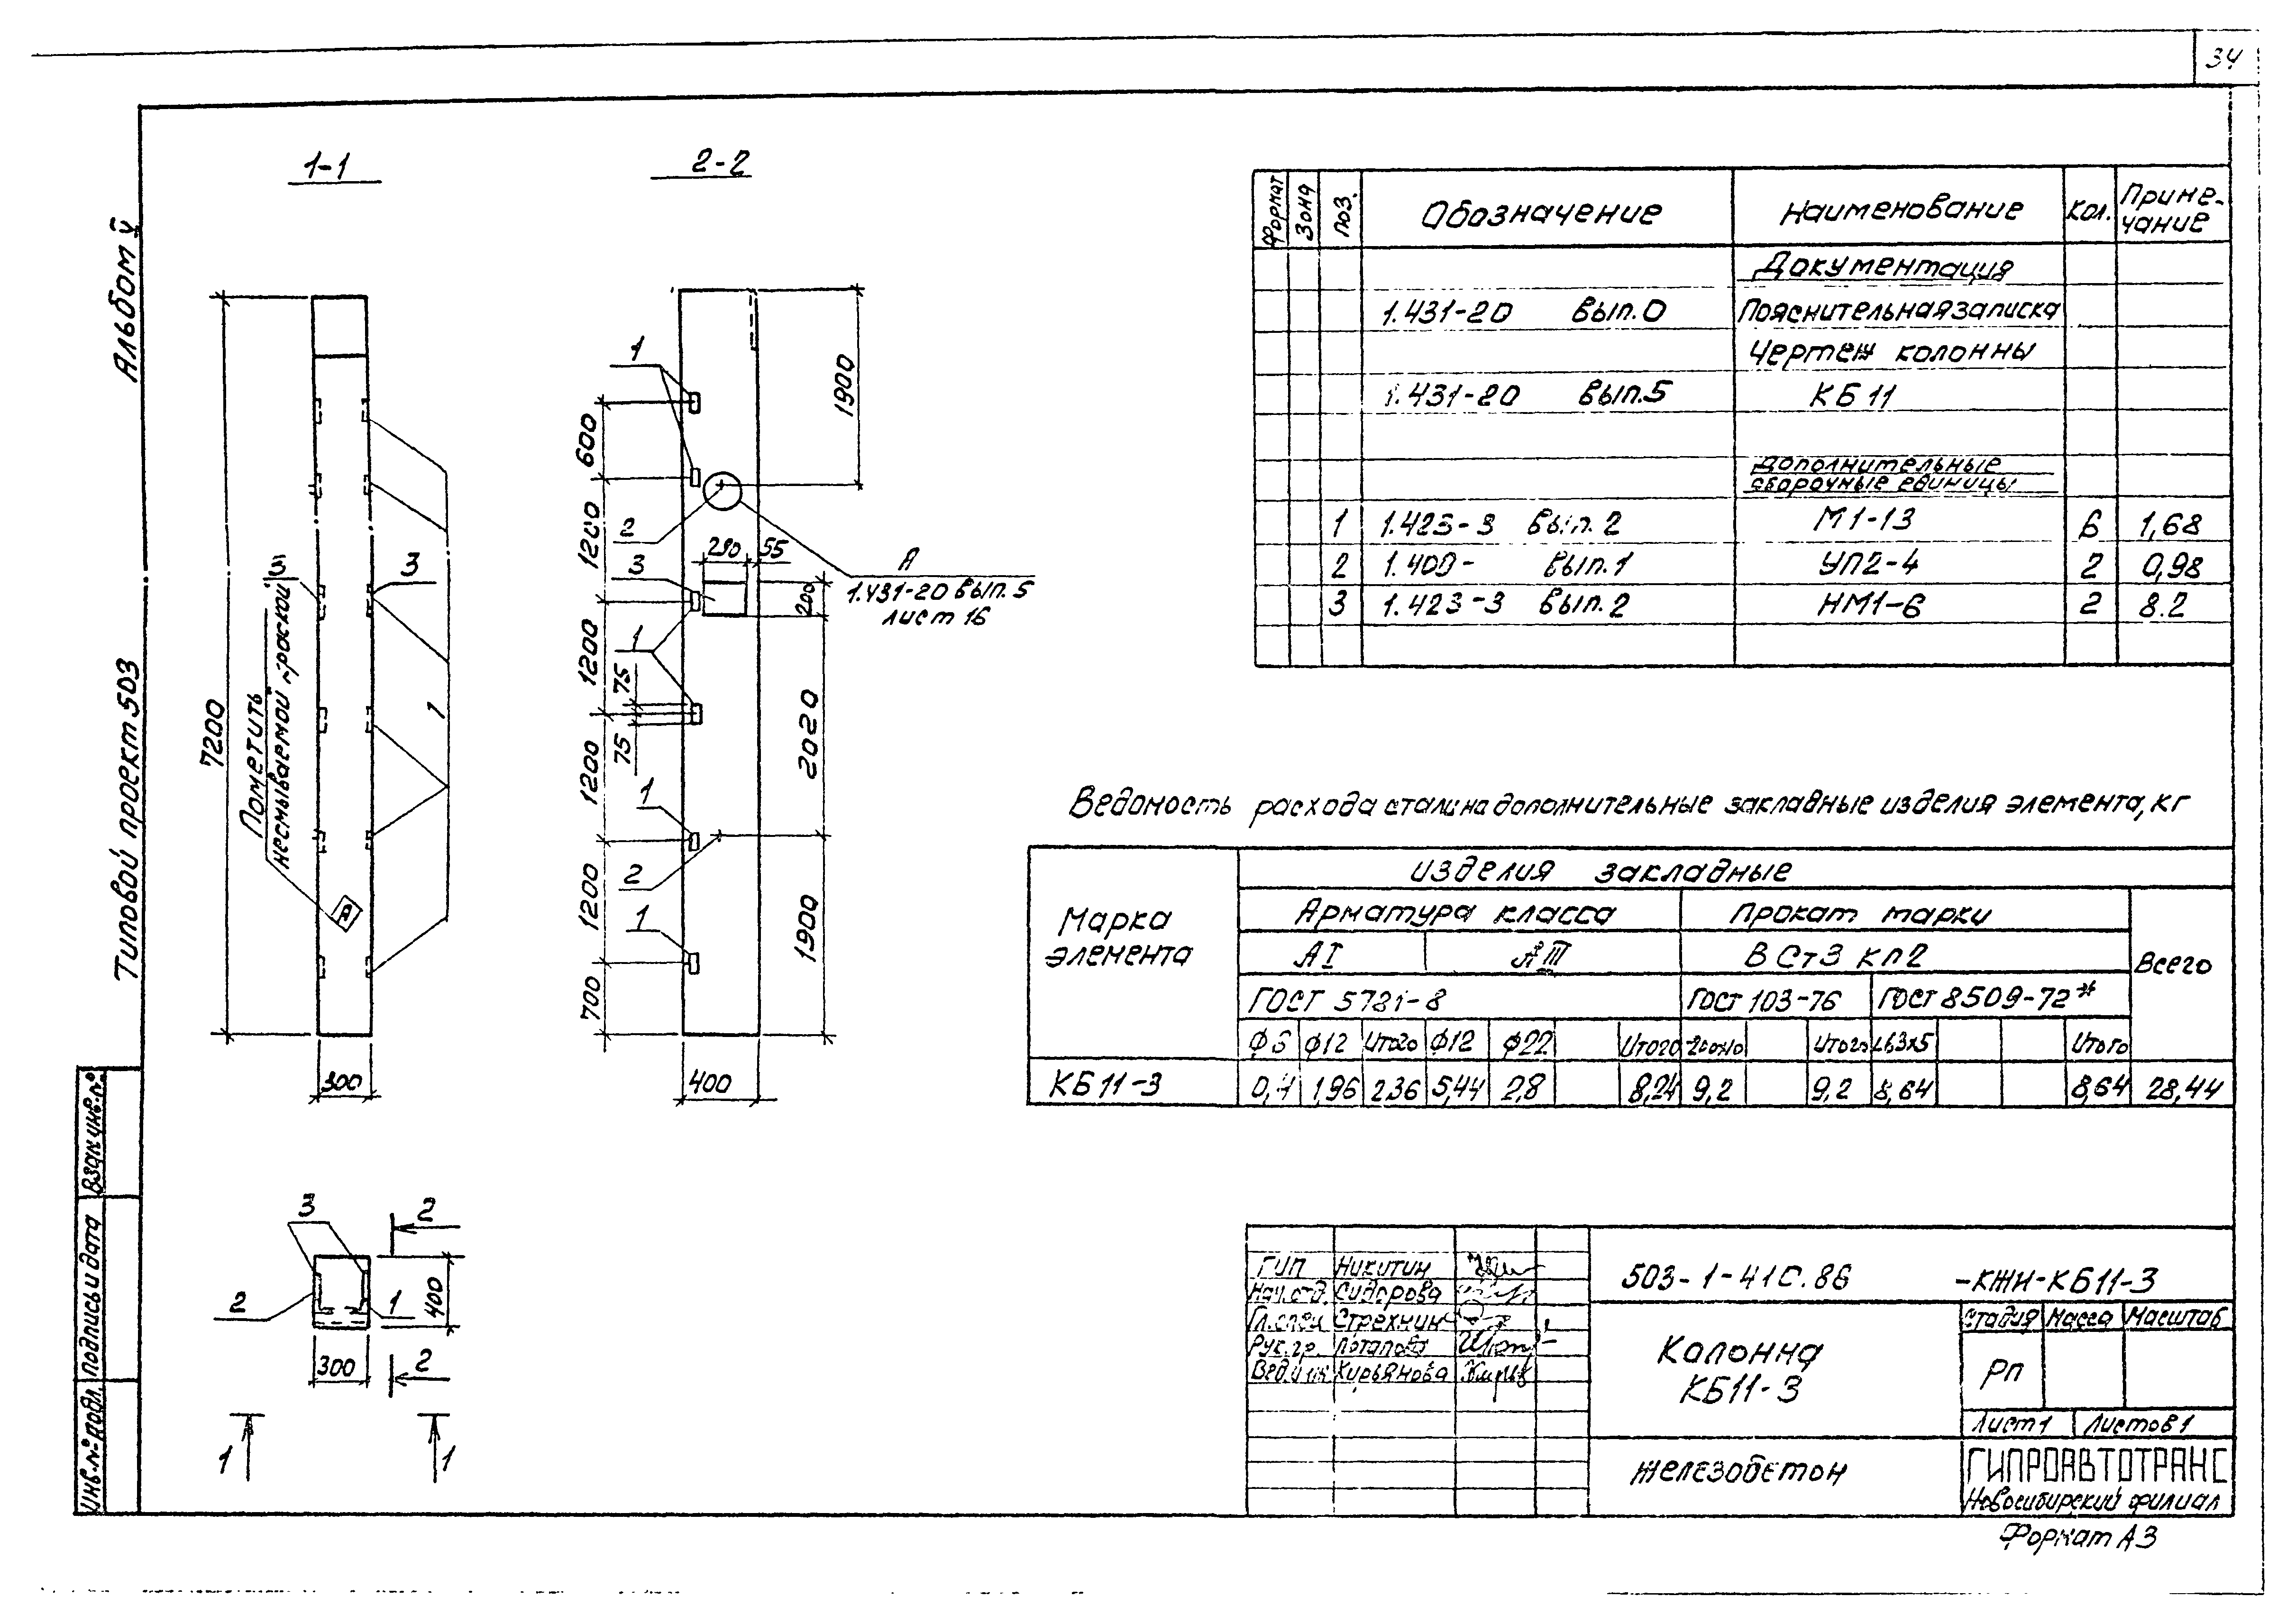 34
Альбом V
Типовой проект 503
1-1
2-2
7200
Пометить
несмываемой краской
3
3
1
А
300
1
600
1200
1200
1200
1200
700
2
3
1
75
75
1
2
1
290
55
200
1900
2020
1900
400
А
1.431-20 вып.5
лист 16
3
2
1
2
2
400
300
1
1
Формат
Зона
Поз.
Обозначение
Наименование
Кол.
Приме-
чание
Документация
1.431-20 вып.0 Пояснительная записка
Чертеж колонны
1.431-20 вып.5 КБ 11
Дополнительные
сборочные единицы
1 1.423-3 вып.2 М1-13 6 1,68
2 1.400- вып.1 УП2-4 2 0,98
3 1.423-3 вып.2 НМ1-6 2 8.2
Ведомость расхода стали на дополнительные закладные изделия элемента, кг
Марка
элемента
Изделия закладные
Арматура класса
Прокат марки
Всего
АI
АIII
В Ст3 кп2
ГОСТ 5781-8
ГОСТ 103-76
ГОСТ 8509-72*
ф6 ф12 Итого ф12 ф22 Итого -200х10 Итого L63х5 Итого
КБ 11-3 0,4 1,96 2,36 5,44 2,8 8,24 9,2 9,2 8,64 8,64 28,44
ГИП Никитин
Нач.отд. Сидорова
Гл.спец Стрехнин
Рук.гр. Потапова
Вед.инж. Кирьянова
503-1-41с.86 -КЖИ-КБ11-3
Колонна
КБ11-3
Стадия Масса Масштаб
Рп
Лист 1 Листов 1
Железобетон
ГИПРОАВТОТРАНС
Новосибирский филиал
Формат А3
Взам.инв.№
Подпись и дата
Инв.№ подл.